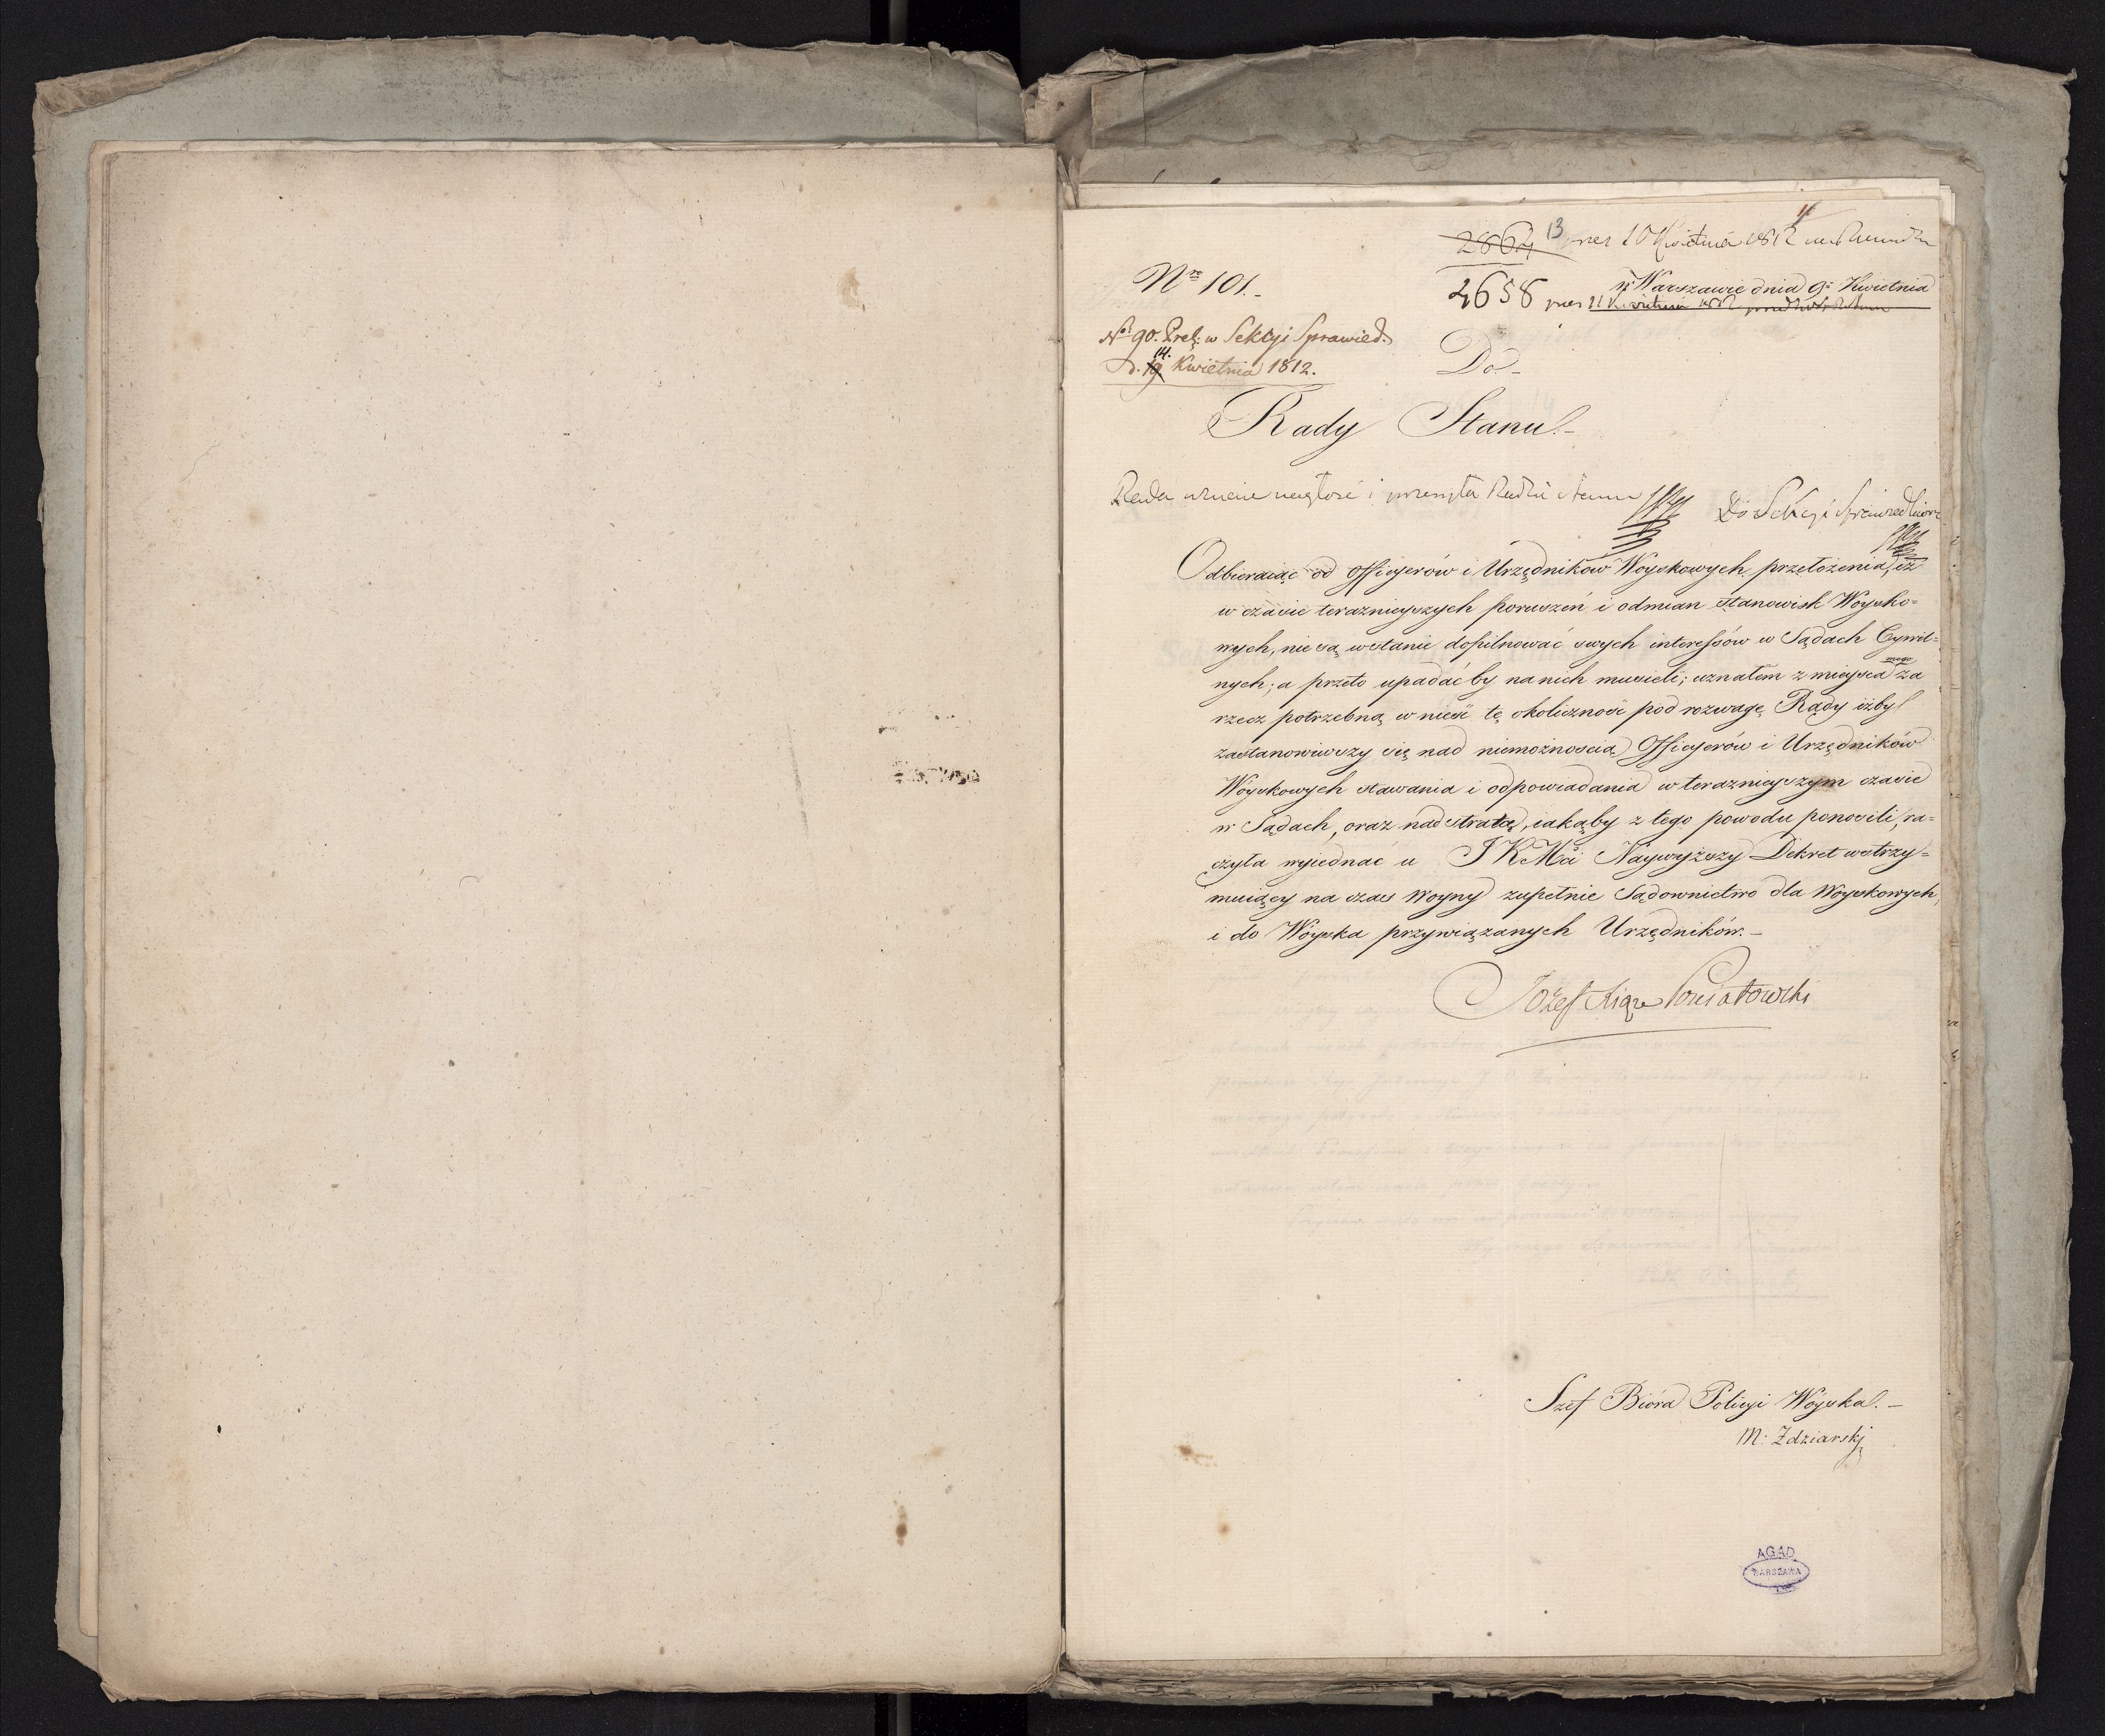 2864 13 10 Kwietnia 1812
Nro 101.-
4658 11 Kwietnia 1812
w Warszawie dnia 9o Kwietnia
No 90. Prez: w Sekcyi Sprawied.
d. 19 14. Kwietnia 1812.
Do-
Rady Stanu.-
Rada uznaie nagłość i przesyła Radzie Stanu
Do Sekcyi Sprawiedliwości
Odbieraiąc od Officyerów i Urzędników Woyskowych przełożenia, iż
w czasie teraznieyszych poruszeń i odmian stanowisk Woysko=
wych, nie są wstanie dopilnować swych interessów w Sądach Cywil=
nych; a przeto upadać by na nich musieli; uznałem z mieysca mego za
rzecz potrzebną wnieść tę okoliczność pod rozwagę Rady iżby
zastanowiwszy się nad niemożnoscią Officyerów i Urzędników
Woyskowych stawania i odpowiadania w teraznieyszym czasie
w Sądach, oraz nad stratą, iakąby z tego powodu ponosili, ra=
czyła wyiednać u JKMci Naywyższy Dekret wstrzy=
muiący na czas Woyny zupełnie Sądownictwo dla Woyskowych,
i do Woyska przywiązanych Urzędników.-
Józef Xiąże Poniatowski
Szef Bióra Policyi Woyska.-
M: Zdziarski
AGAD
WARSZAWA